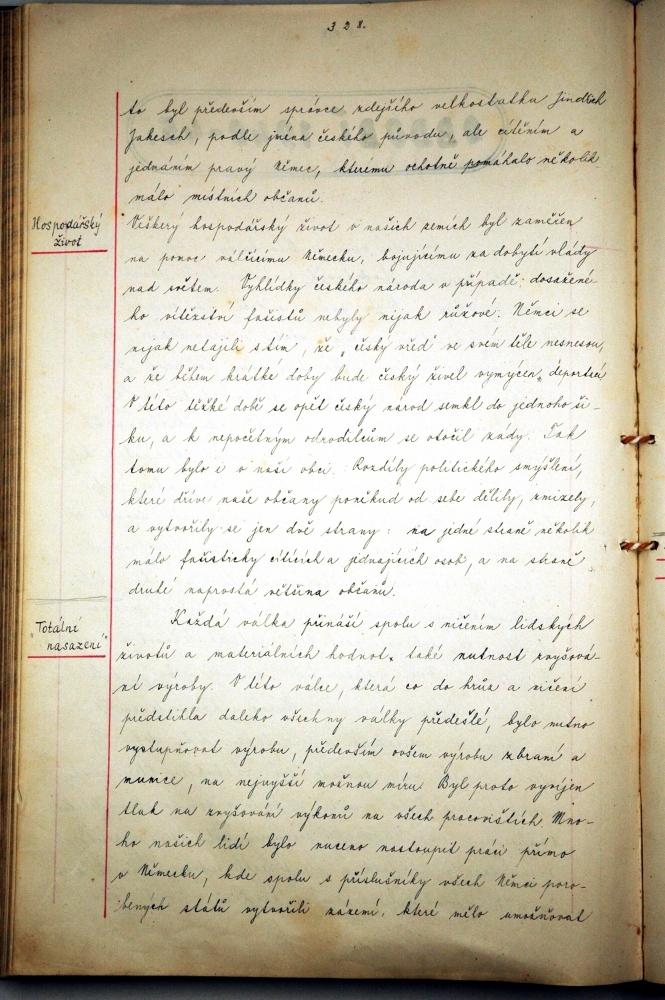 328.
to byl především správce zdejšího velkostatku Jindřich
Jakesch, podle jména českého původu, ale cítěním a
jednáním pravý Němec, kterému ochotně pomáhalo několik
málo místních občanů.
Hospodářský
život
Veškerý hospodářský život v našich zemích byl zaměřen
na pomoc válčícímu Německu, bojujícímu za dobytí vlády
nad světem. Vyhlídky českého národa v případě dosažené-
ho vítězství fašistů nebyly nijak růžové. Němci se
nijak netajili s tím, že „český vřed" ve svém těle nesnesou,
a že během krátké doby bude český živel vymýcen,
V této těžké době se opět český národ semkl do jednoho ši-
ku, a k nepočetným odrodilcům se otočil zády. Tak
tomu bylo i v naší obci. Rozdíly politického smýšlení,
které dříve naše občany poněkud od sebe dělily, zmizely,
a vytvořily se jen dvě strany: na jedné straně několik
málo fašisticky cítících a jednajících osob, a na straně
druhé naprostá většina občanů.
„Totální
nasazení"
Každá válka přináší spolu s ničením lidských
životů a materiálních hodnot, také nutnost zvyšová-
ní výroby. V této válce, která co do hrůz a ničení
předstihla daleko všechny války předešlé, bylo nutno
vystupňovat výrobu, především ovšem výrobu zbraní a
munice, na nejvyšší možnou míru. Byl proto vyvíjen
tlak na zvyšování výkonů na všech pracovištích. Mno-
ho našich lidí bylo nuceno nastoupit práci přímo
v Německu, kde spolu s příslušníky všech Němci poro-
bených států vytvořili zázemí, které mělo umožňovat